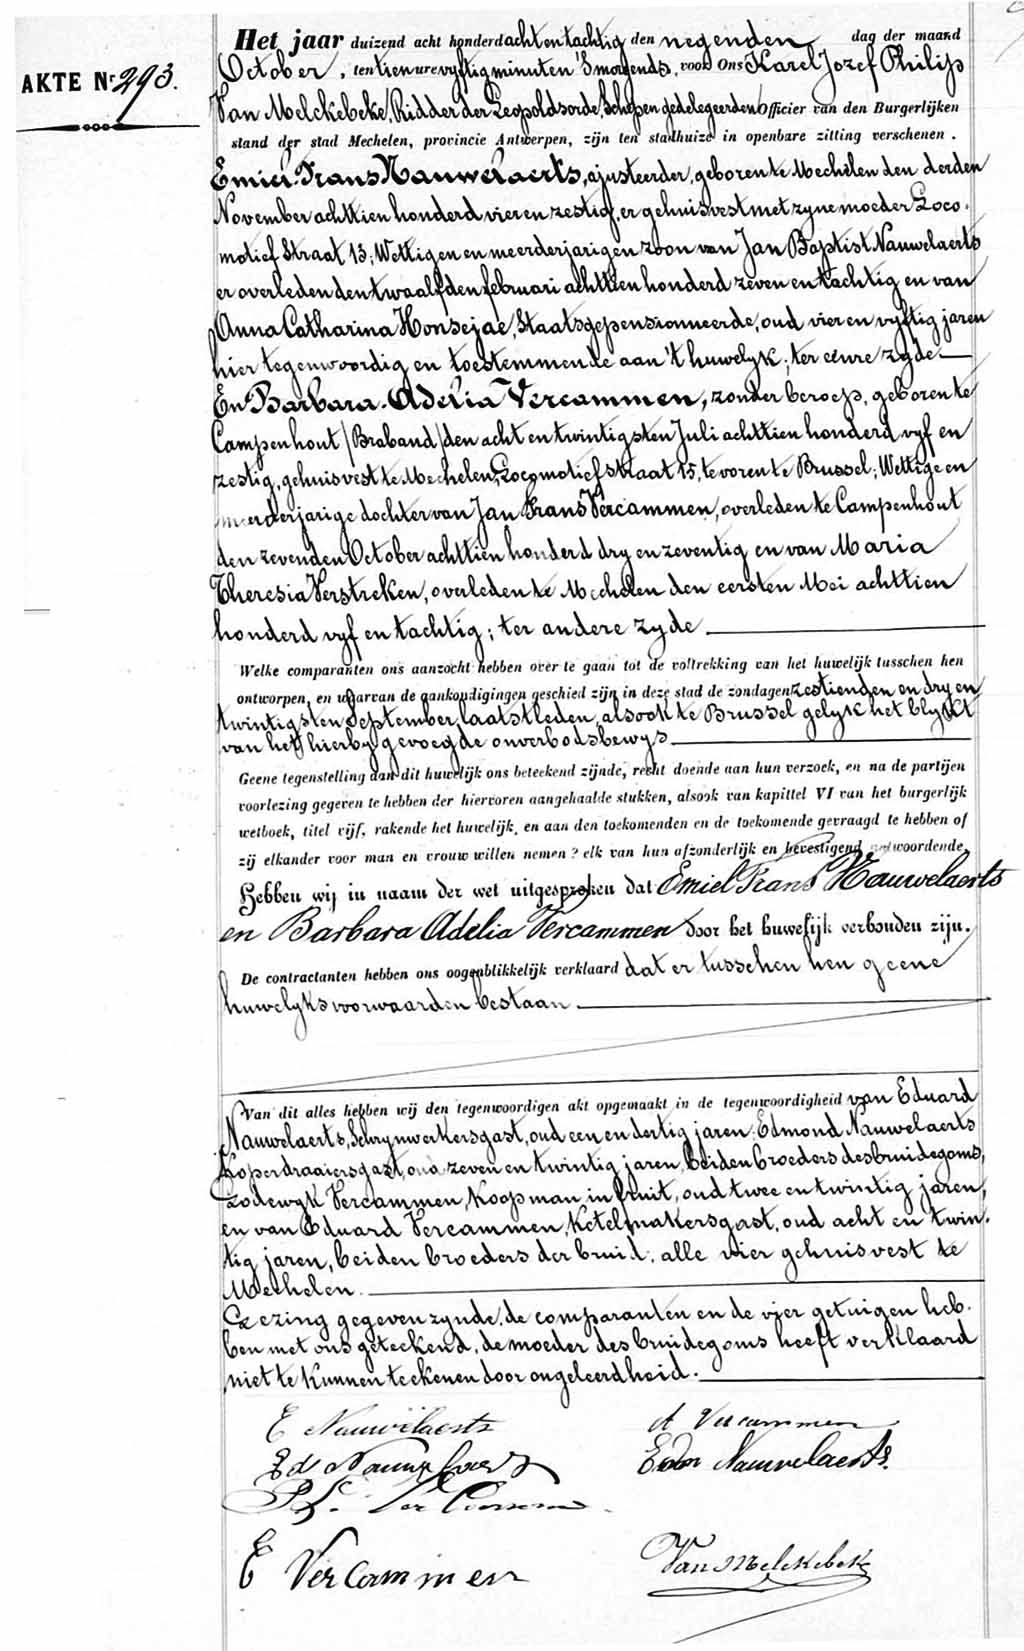 Het jaar duizend acht honderd acht en tachtig den negenden dag der maand
AKTE Nr 293.
October, ten tien ure vyftig minuten 's morgends, voor Ons Karel Jozef Philip
Van Melckebeke, Ridder der Leopoldsorde, Schepen gedelegeerden Officier van den Burgerlijken
stand der stad Mechelen, provincie Antwerpen, zijn ten stadhuize in openbare zitting verschenen.
Emiel Frans Nauwelaerts, ajusteerder, geboren te Mechelen den derden
November achttien honderd vier en zestig, er gehuisvest met zyne moeder Loco-
motief Straat 13; Wettigen en meerderjarigen zoon van Jan Baptist Nauwelaerts
er overleden den twaalfden februari achttien honderd zeven en tachtig en van
Anna Catharina Honsejae, Staatsgepensionneerde, oud vier en vyftig jaren
hier tegenwoordig en toestemmende aan 't huwelyk; ter eenre zyde
En Barbara Adelia Vercammen, zonder beroep, geboren te
Campenhout /Braband/ den acht en twintigsten Juli achttien honderd vyf en
zestig, gehuisvest te Mechelen, Locomotiefstraat 15, tevoren te Brussel; Wettige en
meerderjarige dochter van Jan Frans Vercammen, overleden te Campenhout
den zevenden October achttien honderd dry en zeventig en van Maria
Theresia Verstreken, overleden te Mechelen den eersten Mei achttien
honderd vyf en tachtig; ter andere zyde
Welke comparanten ons aanzocht hebben over te gaan tot de voltrekking van het huwelijk tusschen hen
ontworpen, en waarvan de aankondigingen geschied zijn in deze stad de zondagen zestienden en dry en
twintigsten September laatstleden, alsook te Brussel gelyk het blykt
van het hierby gevoegde onverbodsbewys
Geene tegenstelling aan dit huwelijk ons beteekend zijnde, recht doende aan hun verzoek, en na de partijen
voorlezing gegeven te hebben der hiervoren aangehaalde stukken, alsook van kapittel VI van het burgerlijk
wetboek, titel vijf, rakende het huwelijk, en aan den toekomenden en de toekomende gevraagd te hebben of
zij elkander voor man en vrouw willen nemen? elk van hun afzonderlijk en bevestigend antwoordende,
Hebben wij in naam der wet uitgesproken dat Emiel Frans Nauwelaerts
en Barbara Adelia Vercammen door het huwelijk verbonden zijn.
De contractanten hebben ons oogenblikkelijk verklaard dat er tusschen hen geene
huwelyksvoorwaarden bestaan
Van dit alles hebben wij den tegenwoordigen akt opgemaakt in de tegenwoordigheid van Eduard
Nauwelaerts, Schrynwerkersgast, oud een en dertig jaren, Edmond Nauwelaerts
Koperdraaiersgast, oud zeven en twintig jaren, beiden broeders des bruidegoms,
Lodewyk Vercammen, Koopman in fruit, oud twee en twintig jaren,
en van Eduard Vercammen, Ketelmakersgast, oud acht en twin-
tig jaren, beiden broeders der bruid, alle vier gehuisvest te
Mechelen.
Lezing gegeven zynde, de comparanten en de vier getuigen heb-
ben met ons geteekend, de moeder des bruidegoms heeft verklaard
niet te kunnen teekenen door ongeleerdheid.
E Nauwelaerts A Vercammen
Ed Nauwelaerts Edm Nauwelaerts.
P. L. Ver Cammen
E Vercammen Van Melckebeke